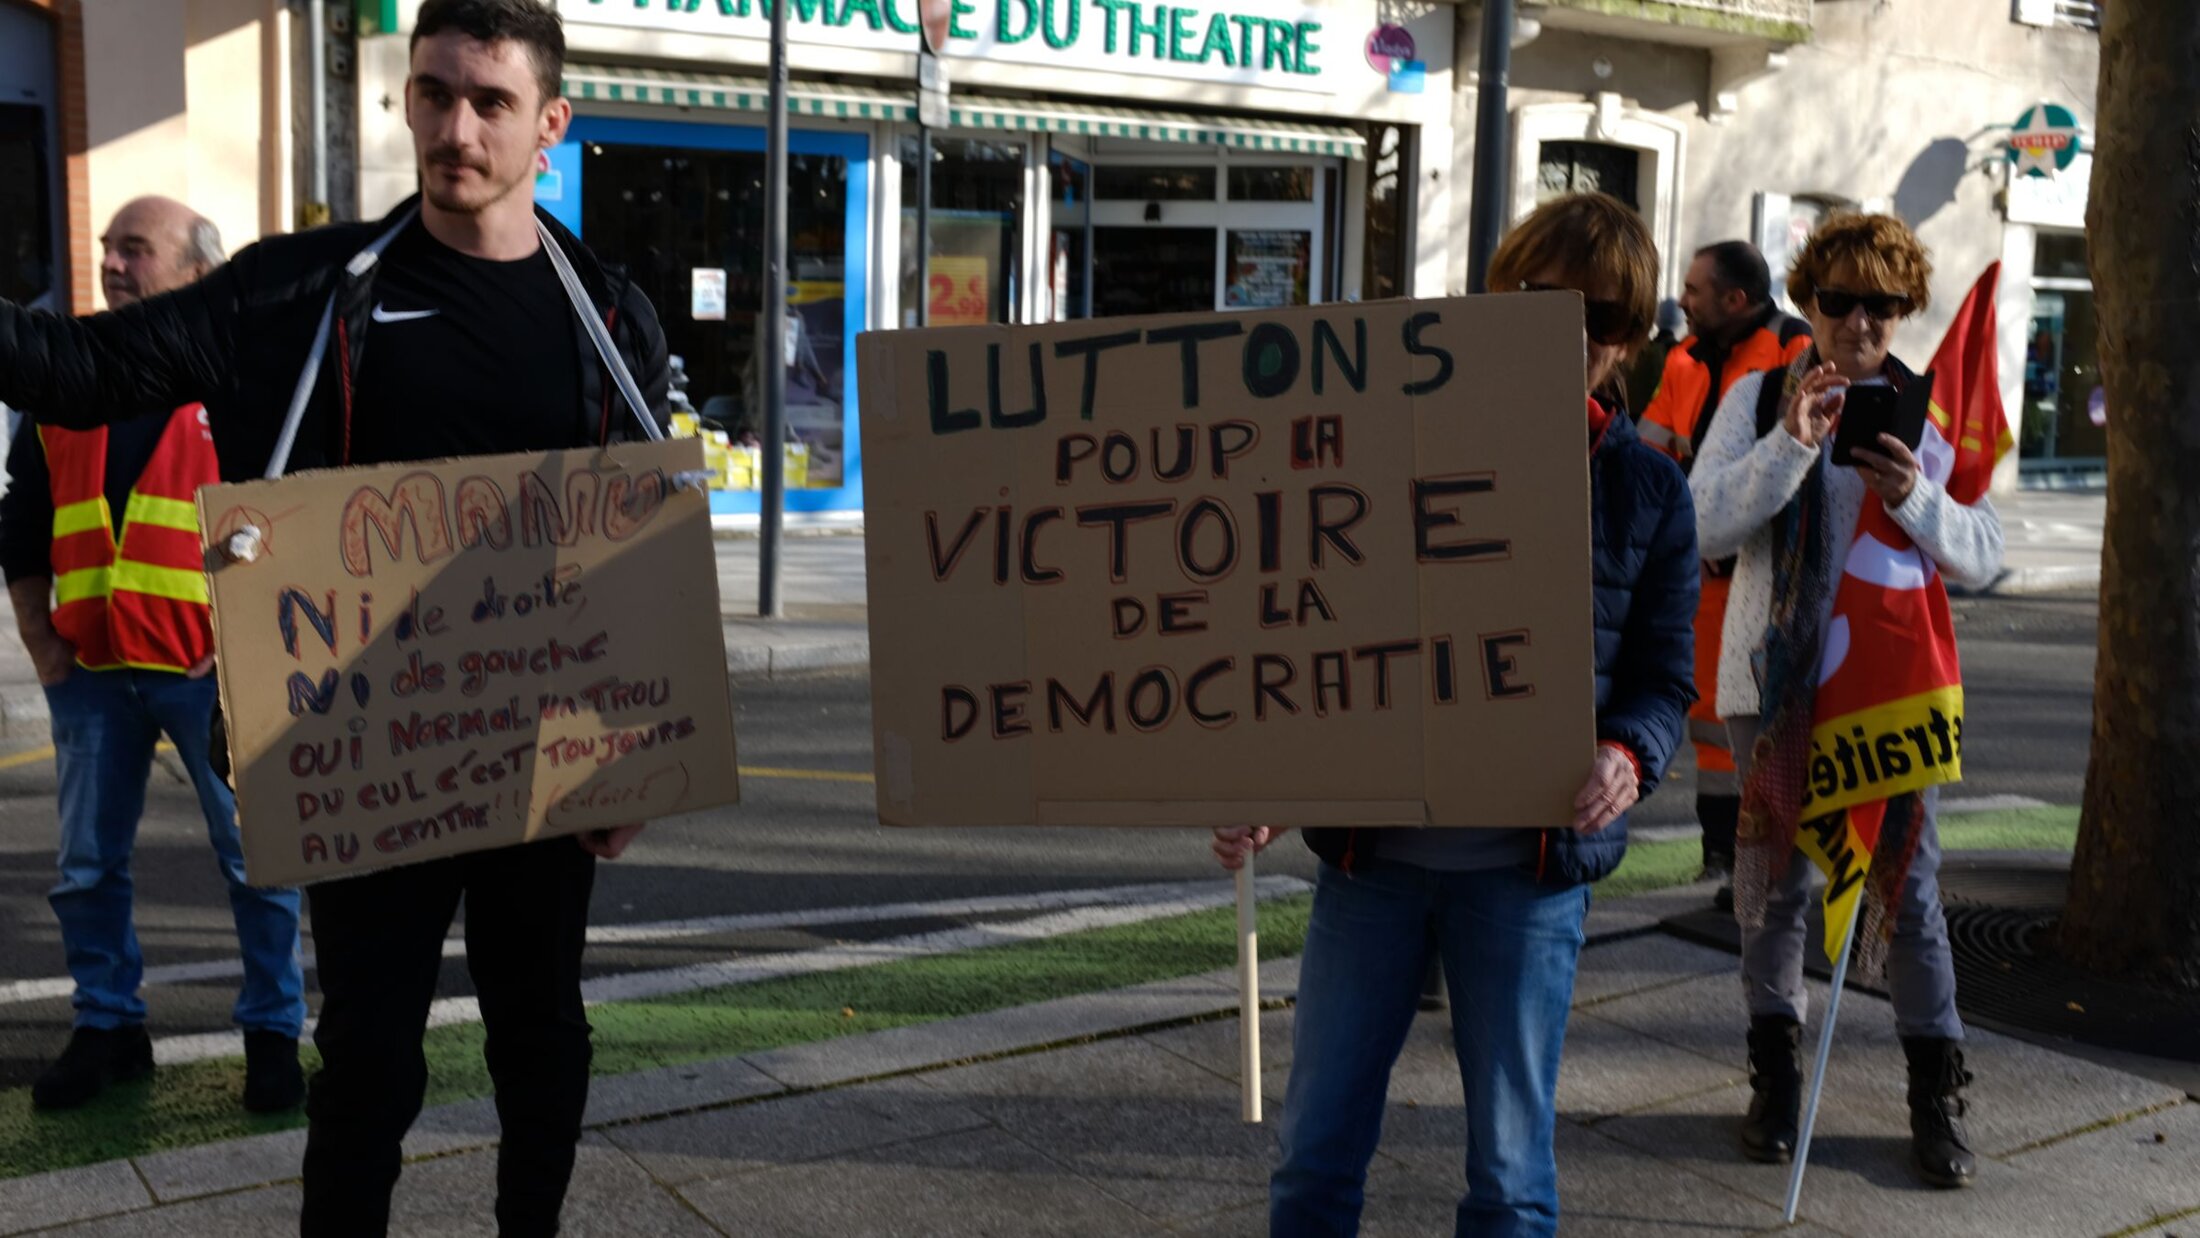 PHARMACIE DU THEATRE
2,99€
MANU
Ni de droite,
Ni de gauche
OUi NORMAL UN TROU
DU CUL C'EST TOUJOURS
AU CENTRE!!!
LUTTONS
POUP LA
VICTOIRE
DE LA
DEMOCRATIE
traités